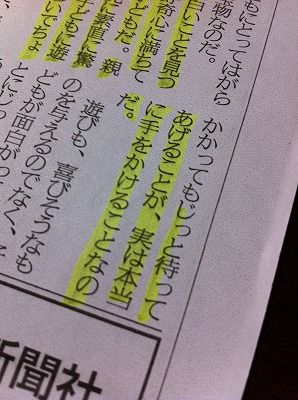 もにとってはがら
物なのだ。
白いことを見つ
奇心に満ちて
どもだ。親
に素直に驚
もに遊
いでちょ
かかってもじっと待って
あげることが、実は本当
に手をかけることなの
だ。
遊びも、喜びそうなも
のを与えるのでなく、
どもが面白がっ
とにじっ
新聞社